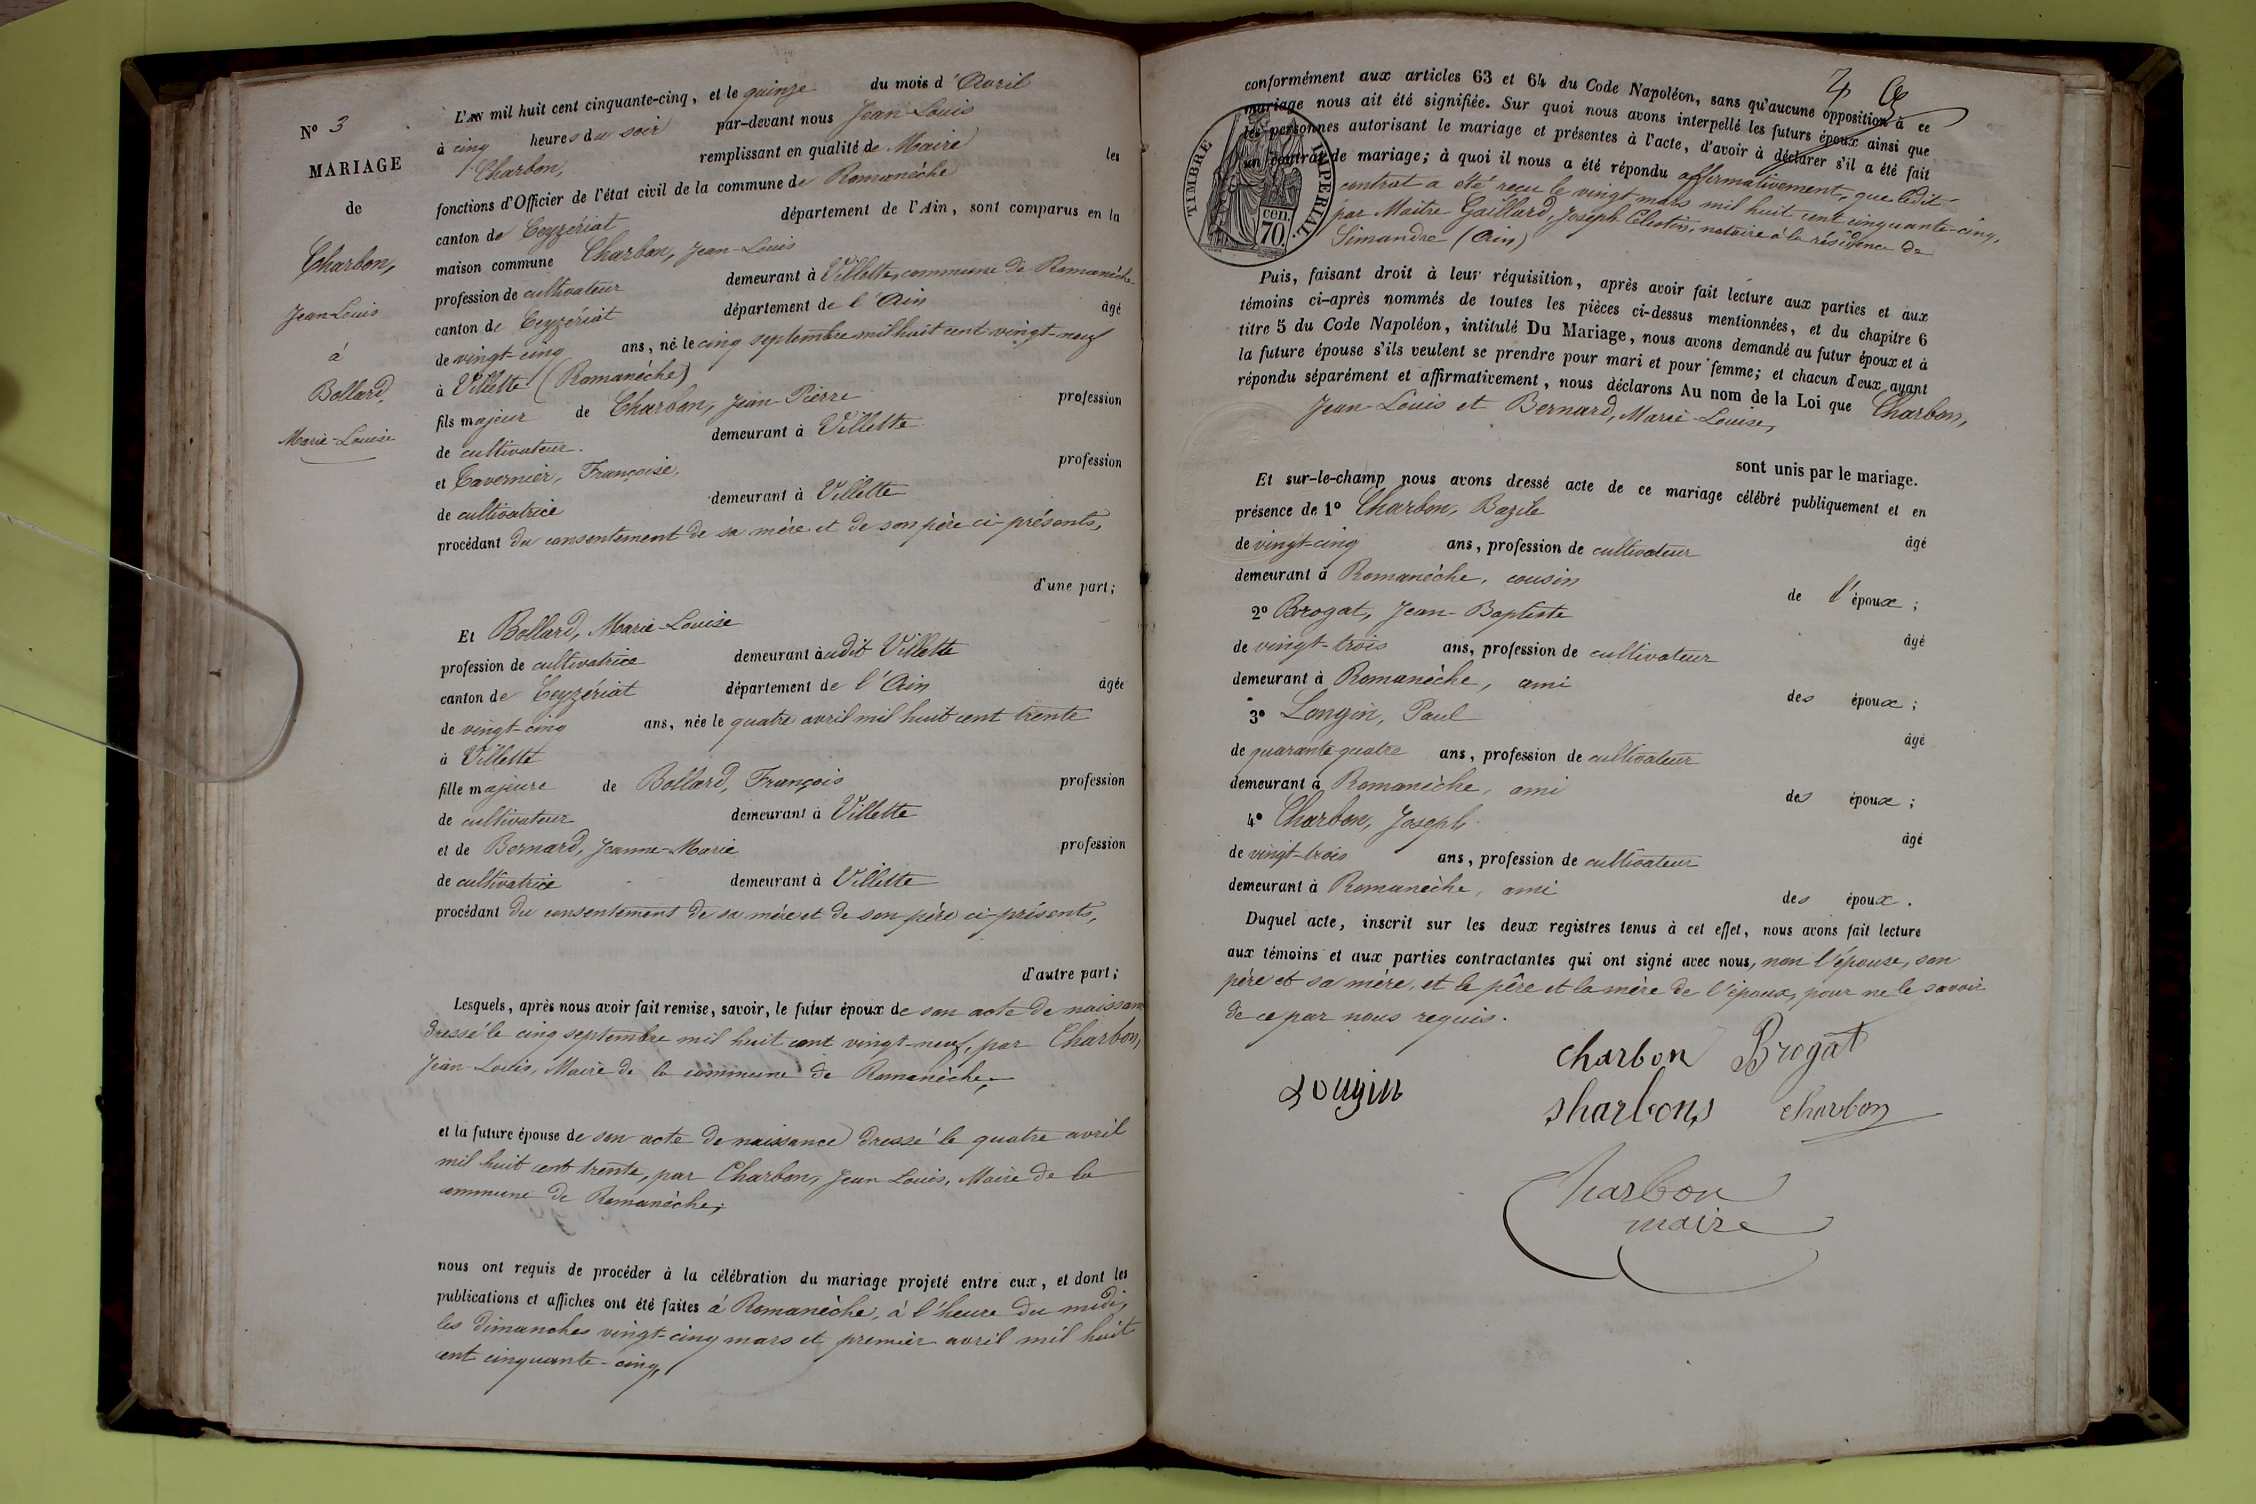 N° 3
MARIAGE
de
Charbon,
Jean Louis
à
Bollard,
Marie-Louise
L'AN mil huit cent cinquante-cinq, et le quinze du mois d'Avril
à cinq heures du soir par-devant nous Jean-Louis
Charbon, remplissant en qualité de Maire les
fonctions d'Officier de l'état civil de la commune de Romanèche
canton de Ceyzériat département de l'Ain, sont comparus en la
maison commune Charbon, Jean-Louis
profession de cultivateur demeurant à Villette, commune de Romanèche
canton de Ceyzériat département de l'Ain âgé
de vingt-cinq ans, né le cinq septembre mil huit cent vingt-neuf
à Villette (Romanèche)
fils majeur de Charbon, Jean-Pierre profession
de cultivateur. demeurant à Villette
et Tavernier, Françoise, profession
de cultivatrice demeurant à Villette
procédant du consentement de sa mère et de son père ci-présents,
d'une part;
Et Bollard, Marie-Louise
profession de cultivatrice demeurant àudit Villette
canton de Ceyzériat département de l'Ain âgée
de vingt-cinq ans, née le quatre avril mil huit cent trente
à Villette
fille majeure de Bollard, François profession
de cultivateur demeurant à Villette
et de Bernard, Jeanne-Marie profession
de cultivatrice demeurant à Villette
procédant du consentement de sa mère et de son père ci-présents,
d'autre part;
Lesquels, après nous avoir fait remise, savoir, le futur époux de son acte de naissan
dressé le cinq septembre mil huit cent vingt-neuf, par Charbon,
Jean-Louis, Maire de la commune de Romanèche,
et la future épouse de son acte de naissance dressé le quatre avril
mil huit cent trente, par Charbon, Jean Louis, Maire de la
commune de Romanèche;
nous ont requis de procéder à la célébration du mariage projeté entre eux, et dont les
publications et affiches ont été faites à Romanèche, à l'heure du midi,
les dimanches vingt-cinq mars et premier avril mil huit
cent cinquante-cinq,
conformément aux articles 63 et 64 du Code Napoléon, sans qu'aucune opposition à ce
mariage nous ait été signifiée. Sur quoi nous avons interpellé les futurs époux ainsi que
les personnes autorisant le mariage et présentes à l'acte, d'avoir à déclarer s'il a été fait
un contrat de mariage; à quoi il nous a été répondu affirmativement, que ledit
contrat a été reçu le vingt mars mil huit cent cinquante-cinq,
par Maître Gaillard, Joseph Célestin, notaire à la résidence de
Simandre (Ain)
TIMBRE IMPERIAL
cen.
70.
Puis, faisant droit à leur réquisition, après avoir fait lecture aux parties et aux
témoins ci-après nommés de toutes les pièces ci-dessus mentionnées, et du chapitre 6
titre 5 du Code Napoléon, intitulé Du Mariage, nous avons demandé au futur époux et à
la future épouse s'ils veulent se prendre pour mari et pour femme; et chacun d'eux ayant
répondu séparément et affirmativement, nous déclarons Au nom de la Loi que Charbon,
Jean-Louis et Bernard, Marie-Louise,
sont unis par le mariage.
Et sur-le-champ nous avons dressé acte de ce mariage célébré publiquement et en
présence de 1° Charbon, Bazile âgé
de vingt-cinq ans, profession de cultivateur
demeurant à Romanèche, cousin de l'époux;
2° Brogat, Jean-Baptiste âgé
de vingt-trois ans, profession de cultivateur
demeurant à Romanèche, ami des époux;
3° Longin, Paul âgé
de quarante-quatre ans, profession de cultivateur
demeurant à Romanèche, ami des époux;
4° Charbon, Joseph âgé
de vingt-trois ans, profession de cultivateur
demeurant à Romanèche, ami des époux.
Duquel acte, inscrit sur les deux registres tenus à cet effet, nous avons fait lecture
aux témoins et aux parties contractantes qui ont signé avec nous, non l'épouse, son
père et sa mère, et le père et la mère de l'époux, pour ne le savoir
de ce par nous requis.
charbon Brogat
Longin sharbons charbon
Charbon
maire